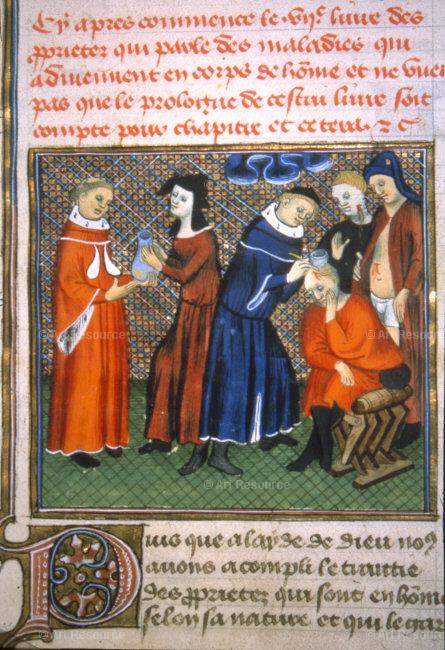 Cy apres commence le vije liure des
pprietez qui parle des maladies qui
aduiennent en corps de hõme et ne vue
pas que le prologue de cestui liure soit
compte pour chapitre et cetera z c
© Art Resource
© Art Resource
© Art Resource
© Art Resource
Puis que a layde de dieu noꝰ
auons acompli le traittie
des pprietez qui sont en hõme
selon sa nature et qui le gar
© Art Resource
© Art Resource